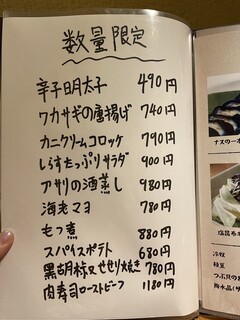 数量限定
辛子明太子 490円
ワカサギの唐揚げ 740円
カニクリームコロッケ 790円
しらすたっぷりサラダ 900円
アサリの酒蒸し 980円
海老マヨ 780円
もつ煮 880円
スパイスポテト 680円
黒胡椒又せせり焼き 780円
肉寿司ローストビーフ 1180円
ナスの一本
塩昆布キ
冷奴
枝豆
つぶ貝の